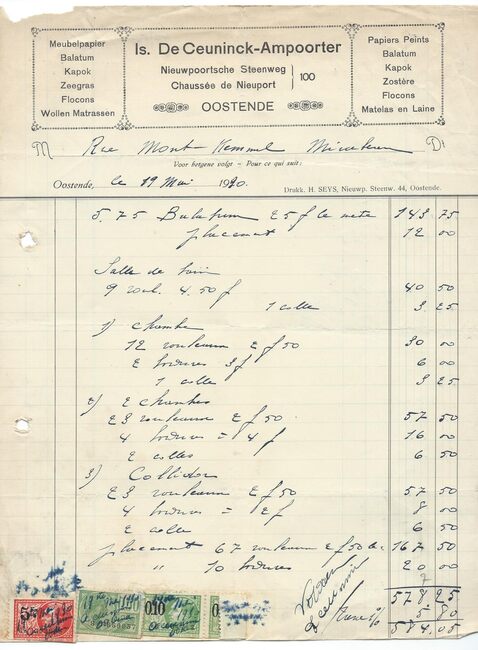 Meubelpapier
Balatum
Kapok
Zeegras
Flocons
Wollen Matrassen
Is. De Ceuninck-Ampoorter
Nieuwpoortsche Steenweg
Chaussée de Nieuport
100
OOSTENDE
Papiers Peints
Balatum
Kapok
Zostère
Flocons
Matelas en Laine
M Rue Mont Kemmel Dt
Voor hetgene volgt – Pour ce qui suit:
Oostende, le 19 Mai 19
Drukk. H. SEYS, Nieuwp. Steenw. 44, Oostende.
5.75 Balatum 25 f le metre 143 75
placement 12 00
Salle de bain
9 roul. 4.50 f 40 50
1 colle 3 25
1) chambre
12 rouleaux 2 f 50 30 00
2 bordures 3 f 6 00
1 colle 3 25
2) 2 chambres
23 rouleaux 2 f 50 57 50
4 bordures = 4 f 16 00
2 colles 6 50
3)
23 rouleaux 2 f 50 57 50
4 bordures = 2 f 8 00
2 colle 6 50
placement 67 rouleaux 2 f 50 167 50
" 10 bordures 20 00
578 25
5 80
584.05
0.10